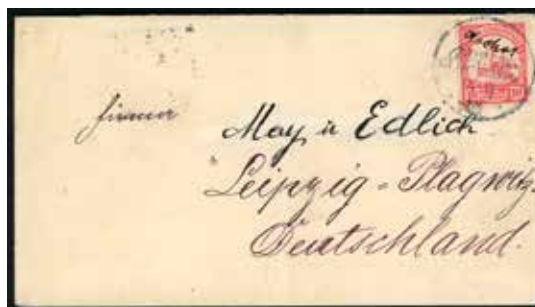 Firma
May u Edlich
Leipzig = Plagwitz.
Deutschland.